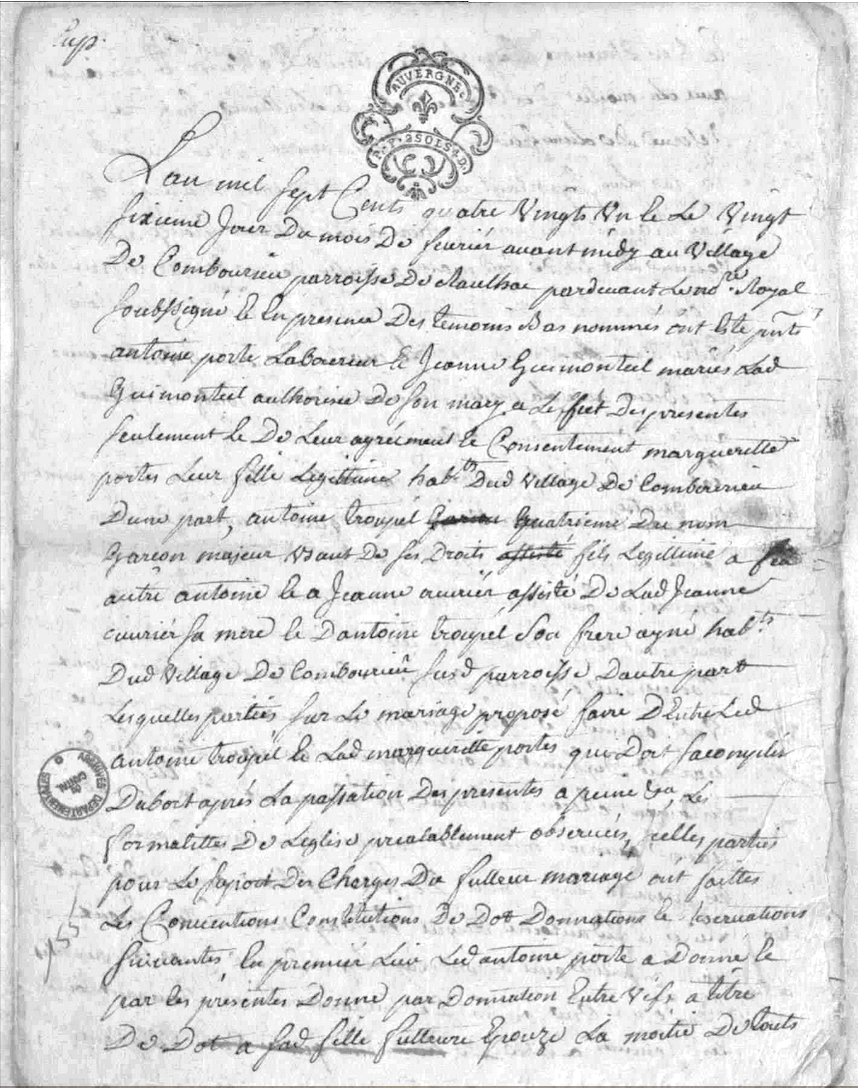 Exp.
AUVERGNE.
2 SOLS 4 D.
L'an mil sept Cents quatre Vingts Un le Le Vingt
sixieme Jour Du mois De fevrier avant midy au Village
De Combourieu parroisse De Raulhac pardevant Le no.re Royal
soubsigné le En presence Des temoins Bas nommés ont Eté pnts
antoine porte Laboureur le Jeanne Guimonteil mariés Lad
Guimonteil authorisée De son mary a Leffet Des presentes
seulement le De Leur agréement le Consentement marguerette
portes Leur fille Legittime hab.ts Dud Village De Combourieu
Dune part, antoine troupel quatrieme Du nom
Garçon majeur Usant De ses Droits fils Legittime a feu
autre antoine le a Jeanne assisté De Lad Jeanne
sa mere le Dantoine troupel Son frere ayné hab.ts
Dud Village De Combourieu susd parroisse Dautre part
Lesquelles parties sur Le mariage proposé faire D'Entre Led
antoine troupel le Lad marguerette portes qui Doit sacomplir
Dabort aprés La passation Des presentes a peine &a, Les
formalittes De Leglise prealablement observées, jcelles parties
pour Le suport Des Charges Du futteur mariage ont faittes
Les Conventions Constitutions De Dot Donnations le reservations
suivantes En premier Lieu Led antoine porte a Donné le
par les présentes Donne par Donnation Entre Vifs a titre
De Dot a sad fille futteure Epouze La moitié De touts
ARCHIVES DEPARTEMENTALES
DU CANTAL